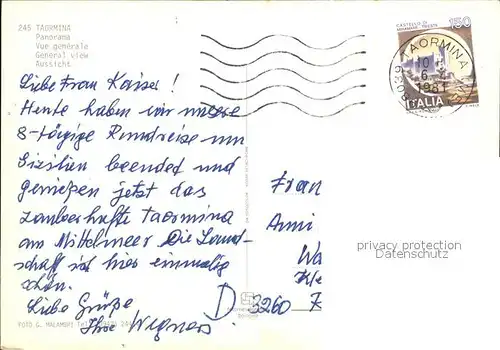 245 TAORMINA
Panorama
Vue générale
General view
Aussicht
CASTELLO DI
MIRAMARE - TRIESTE
150
ITALIA
TAORMINA
10
6
1981
98039
Liebe Frau Kaiser!
Heute haben wir unsere
8-tägige Rundreise um
Sizilien beendet und
genießen jetzt das
zauberhafte Taormina
am Mittelmeer. Die Land-
schaft ist hier einmalig
schön.
Liebe Grüße
Ihre Wegners
Frau
Anni
Wa
D 3260
privacy protection
Datenschutz
FOTO G. MALAMBRI